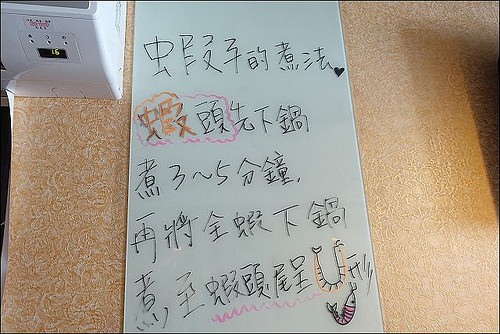 蝦段子的煮法♥
蝦頭先下鍋
煮3~5分鐘,
再將全蝦下鍋
煮至蝦頭尾呈U形